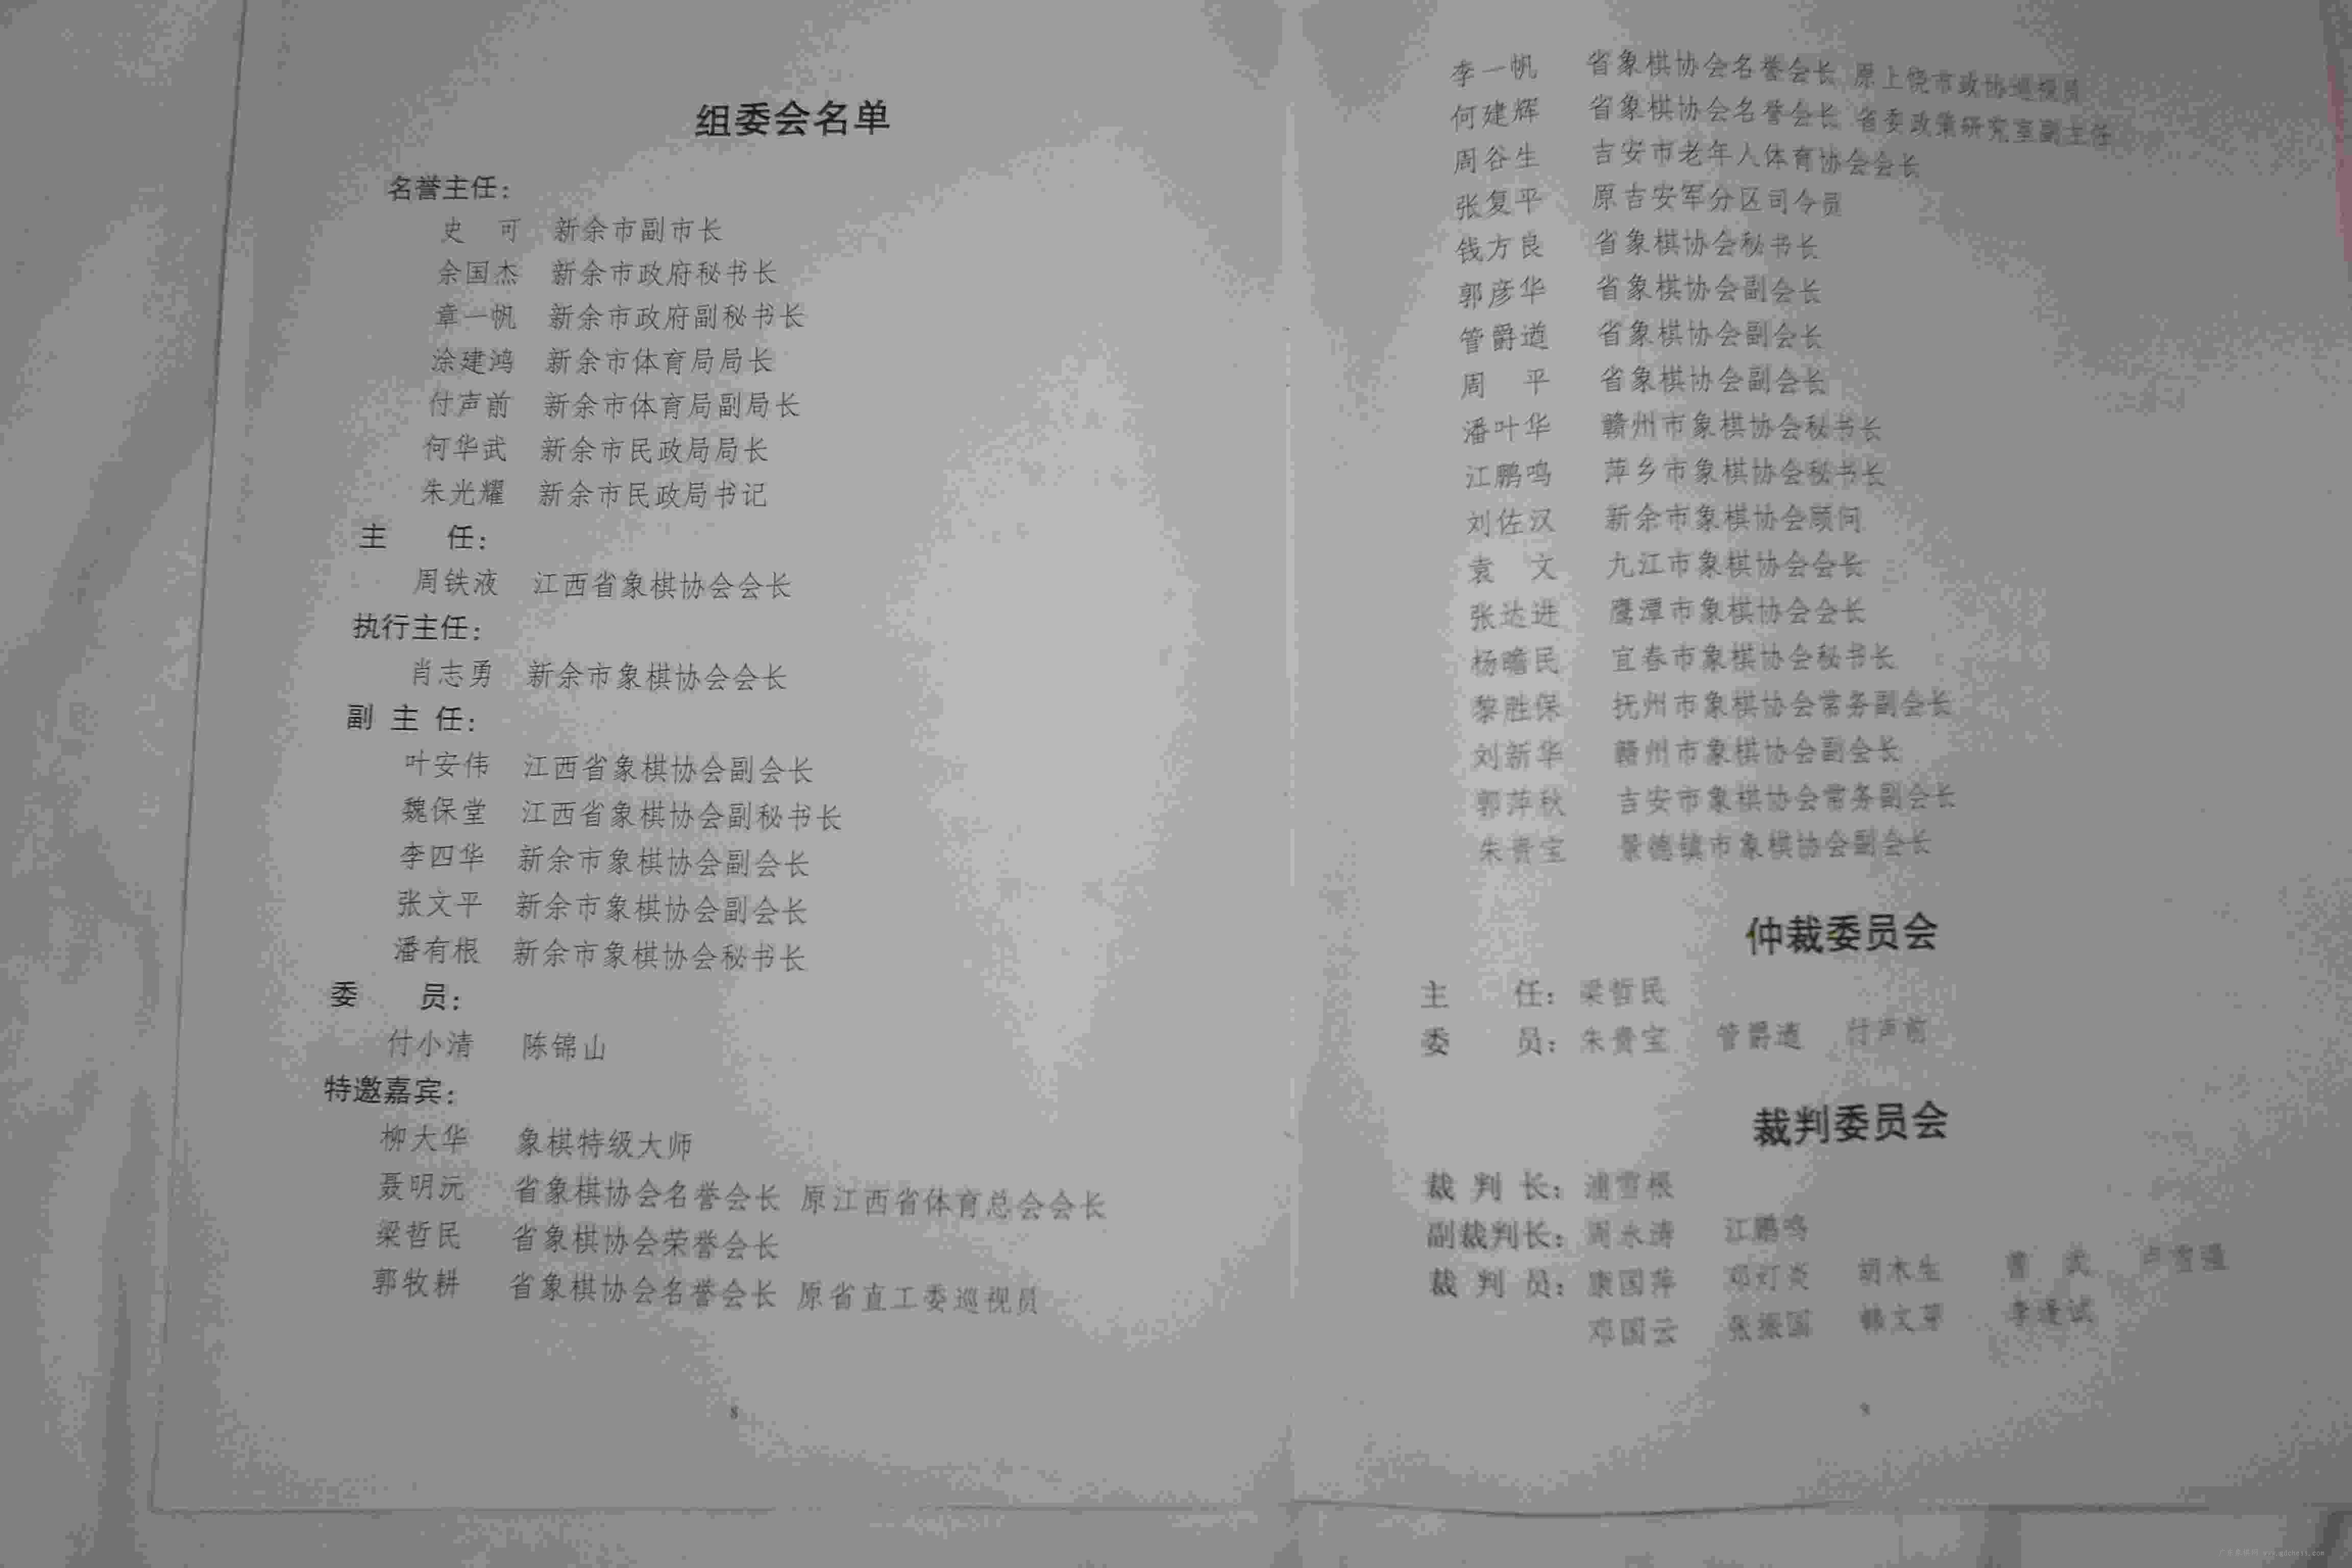 组委会名单
名誉主任：
史　可　新余市副市长
余国杰　新余市政府秘书长
章一帆　新余市政府副秘书长
涂建鸿　新余市体育局局长
付声前　新余市体育局副局长
何华武　新余市民政局局长
朱光耀　新余市民政局书记
主　　任：
周铁液　江西省象棋协会会长
执行主任：
肖志勇　新余市象棋协会会长
副 主 任：
叶安伟　江西省象棋协会副会长
魏保堂　江西省象棋协会副秘书长
李四华　新余市象棋协会副会长
张文平　新余市象棋协会副会长
潘有根　新余市象棋协会秘书长
委　　员：
付小清　陈锦山
特邀嘉宾：
柳大华　象棋特级大师
聂明沅　省象棋协会名誉会长 原江西省体育总会会长
梁哲民　省象棋协会荣誉会长
郭牧耕　省象棋协会名誉会长 原省直工委巡视员
8
李一帆　省象棋协会名誉会长 原上饶市政协巡视员
何建辉　省象棋协会名誉会长 省委政策研究室副主任
周谷生　吉安市老年人体育协会会长
张复平　原吉安军分区司令员
钱方良　省象棋协会秘书长
郭彦华　省象棋协会副会长
管爵道　省象棋协会副会长
周　平　省象棋协会副会长
潘叶华　赣州市象棋协会秘书长
江鹏鸣　萍乡市象棋协会秘书长
刘佐汉　新余市象棋协会顾问
袁　文　九江市象棋协会会长
张达进　鹰潭市象棋协会会长
杨瞻民　宜春市象棋协会秘书长
黎胜保　抚州市象棋协会常务副会长
刘新华　赣州市象棋协会副会长
郭萍秋　吉安市象棋协会常务副会长
朱贵宝　景德镇市象棋协会副会长
仲裁委员会
主　　任：梁哲民
委　　员：朱贵宝　管爵道　付声前
裁判委员会
裁 判 长：浦雪根
副裁判长：周永清　江鹏鸣
裁 判 员：康国萍　邓灯炎　胡木生
邓国云　张振国
9